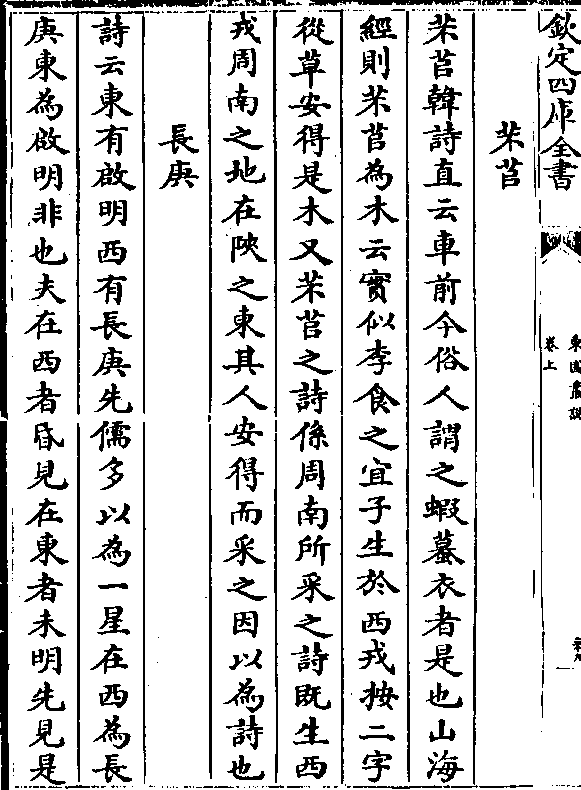 欽定四庫全書
卷上
芣苢
芣苢韓詩直云車前今俗人謂之蝦蟇衣者是也山海
經則芣苢為木云實似李食之宜子生於西戎按二字
從草安得是木又芣苢之詩係周南所采之詩既生西
戎周南之地在陜之東其人安得而采之因以為詩也
長庚
詩云東有啟明西有長庚先儒多以為一星在西為長
庚東為啟明非也夫在西者昏見在東者未明先見是